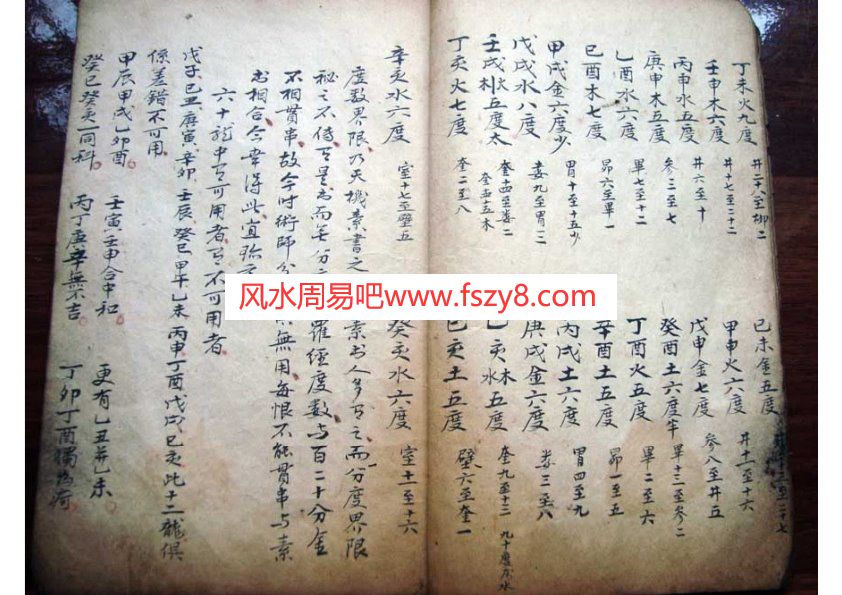 丁未火九度 井二十八至柳二
壬申木六度 井十七至二十二
丙申水五度 井六至十
庚申木五度 参三至七
乙酉水六度 畢七至十二
己酉木七度 昴六至畢一
甲戌金六度少 胃十至十五少
戊戌水八度 婁九至胃二
壬戌木五度太 奎十五至婁二
丁亥火七度 奎二至八
己未金五度
甲申火六度 井十一至十六
戊申金七度 参八至井五
癸酉土六度半 畢十三至参二
丁酉火五度 畢二至六
辛酉土五度 昴一至五
丙戌土六度 胃四至九
庚戌金六度 婁三至八
乙亥木五度 奎九至十三
己亥土五度 壁六至奎一
辛亥水六度 室十七至壁五 癸亥水六度 室十一至十六
度数界限乃天機素書之 素书人多 之而分度界限
秘之不传 是 而每分 羅經度数与百二十分金
不相貫串故今时術師 無用每恨不能貫串与素
书相合今幸得此宜珍
六十龍中有可用者有不可用者
戊子己丑庚寅辛卯壬辰癸巳甲午乙未丙申丁酉戊戌己亥此十二龍俱
係差錯不可用
甲辰甲戌乙卯酉 壬寅壬申合中和 更有乙丑并乙未
癸巳癸亥一同科 丙丁庚辛無不吉 丁卯丁酉獨为奇
风水周易吧www.fszy8.com